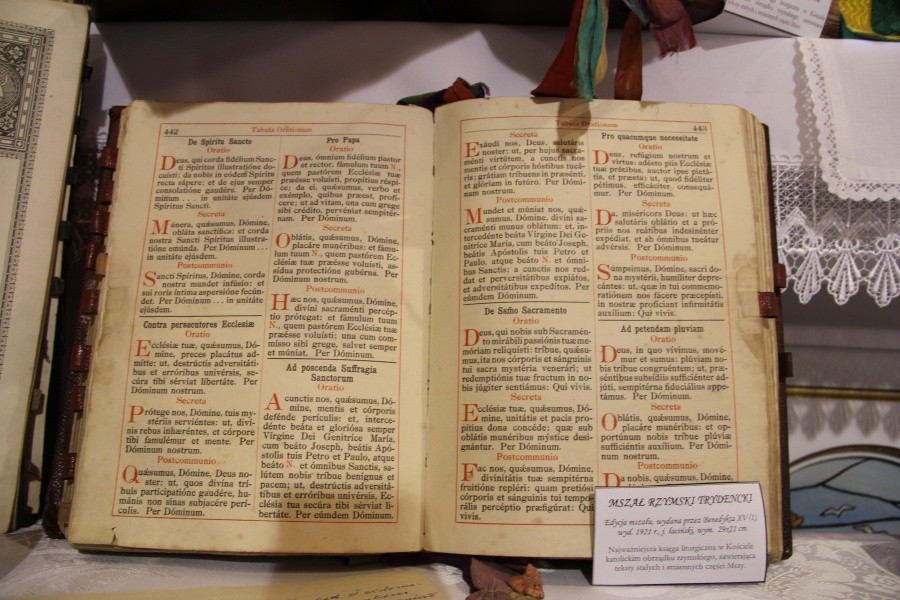 442
Tabula Orationum
De Spiritu Sancto
Oratio
Deus, qui corda fidélium Sanc-
ti Spíritus illustratióne do-
cuísti: da nobis in eódem Spíritu
recta sápere; et de ejus semper
consolatióne gaudére. Per Dó-
minum ... in unitáte ejúsdem
Spíritus Sancti.
Secreta
Múnera, quǽsumus, Dómine,
obláta sanctífica: et corda
nostra Sancti Spíritus illustra-
tióne emúnda. Per Dóminum ...
in unitáte ejúsdem.
Postcommunio
Sancti Spíritus, Dómine, corda
nostra mundet infúsio: et
sui roris íntima aspersióne fœcún-
det. Per Dóminum ... in unitáte
ejúsdem.
Contra persecutores Ecclesiæ
Oratio
Ecclésiæ tuæ, quǽsumus, Dó-
mine, preces placátus ad-
mítte: ut, destrúctis adversitáti-
bus et erróribus univérsis, se-
cúra tibi sérviat libertáte. Per
Dóminum nostrum.
Secreta
Prótege nos, Dómine, tuis my-
stériis serviéntes: ut, diví-
nis rebus inhæréntes, et córpore
tibi famulémur et mente. Per
Dóminum nostrum.
Postcommunio
Quǽsumus, Dómine, Deus no-
ster: ut, quos divína trí-
buis participatióne gaudére, hu-
mánis non sinas subjacére perí-
culis. Per Dóminum.
Pro Papa
Oratio
Deus, ómnium fidélium pastor
et rector, fámulum tuum N.,
quem pastórem Ecclésiæ tuæ
præésse voluísti, propítius réspi-
ce: da ei, quǽsumus, verbo et
exémplo, quibus præest, profí-
cere; ut ad vitam, una cum grege
sibi crédito, pervéniat sempitér-
nam. Per Dóminum.
Secreta
Oblátis, quǽsumus, Dómine,
placáre munéribus: et fámu-
lum tuum N., quem pastórem Ec-
clésiæ tuæ præésse voluísti, as-
sídua protectióne gubérna. Per
Dóminum nostrum.
Postcommunio
Hæc nos, quǽsumus, Dómine,
divíni sacraménti percép-
tio prótegat: et fámulum tuum
N., quem pastórem Ecclésiæ tuæ
præésse voluísti; una cum com-
mísso sibi grege, salvet semper
et múniat. Per Dóminum.
Ad poscenda Suffragia
Sanctorum
Oratio
A cunctis nos, quǽsumus, Dó-
mine, mentis et córporis
defénde perículis: et, interce-
dénte beáta et gloriósa semper
Vírgine Dei Genitríce María,
cum beáto Joseph, beátis Apó-
stolis tuis Petro et Paulo, atque
beáto N. et ómnibus Sanctis, sa-
lútem nobis tríbue benígnus et
pacem; ut, destrúctis adversitá-
tibus et erróribus univérsis, Ec-
clésia tua secúra tibi sérviat li-
bertáte. Per eúmdem Dóminum.
443
Secreta
Exáudi nos, Deus, salutáris
noster: ut, per hujus sacra-
ménti virtútem, a cunctis nos
mentis et córporis hóstibus tueá-
ris; grátiam tríbuens in præsénti,
et glóriam in futúro. Per Dómi-
num nostrum.
Postcommunio
Mundet et múniat nos, quǽ-
sumus, Dómine, divíni sa-
craménti munus oblátum: et, in-
tercedénte beáta Vírgine Dei Ge-
nitríce María, cum beáto Joseph,
beátis Apóstolis tuis Petro et
Paulo, atque beáto N. et ómni-
bus Sanctis; a cunctis nos red-
dat et perversitátibus expiátos,
et adversitátibus expedítos. Per
eúmdem Dóminum.
De Ssmo Sacramento
Oratio
Deus, qui nobis sub Sacramén-
to mirábili passiónis tuæ me-
móriam reliquísti: tríbue, quǽsu-
mus, ita nos córporis et sánguinis
tui sacra mystéria venerári; ut
redemptiónis tuæ fructum in no-
bis júgiter sentiámus: Qui vivis.
Secreta
Ecclésiæ tuæ, quǽsumus, Dó-
mine, unitátis et pacis pro-
pítius dona concéde: quæ sub
oblátis munéribus mýstice desi-
gnántur. Per Dóminum.
Postcommunio
Fac nos, quǽsumus, Dómine,
divinitátis tuæ sempitérna
fruitióne repléri: quam pretiósi
córporis et sánguinis tui tempo-
rális percéptio præfigúrat: Qui
vivis.
Pro quacumque necessitate
Oratio
Deus, refúgium nostrum et
virtus: adésto piis Ecclésiæ
tuæ précibus, auctor ipse pietá-
tis, et præsta; ut, quod fidéliter
pétimus, efficáciter, consequá-
mur. Per Dóminum.
Secreta
Da, miséricors Deus: ut hæc
salutáris oblátio et a pró-
priis nos reátibus indesinénter
expédiat, et ab ómnibus tueátur
advérsis. Per Dóminum.
Postcommunio
Súmpsimus, Dómine, sacri do-
na mystérii, humíliter depre-
cántes: ut, quæ in tui commemo-
ratiónem nos fácere præcepísti,
in nostræ profíciant infirmitátis
auxílium: Qui vivis.
Ad petendam pluviam
Oratio
Deus, in quo vívimus, mové-
mur et sumus: plúviam no-
bis tríbue congruéntem; ut, præ-
séntibus subsídiis sufficiénter ad-
júti, sempitérna fiduciálius appe-
támus. Per Dóminum.
Secreta
Oblátis, quǽsumus, Dómine,
placáre munéribus: et op-
portúnum nobis tríbue plúviæ
sufficiéntis auxílium. Per Dómi-
num nostrum.
Postcommunio
Da nobis, quǽsumus, Dómine,
MSZAŁ RZYMSKI TRYDENCKI
Edycja mszału, wydana przez Benedykta XV (!),
wyd. 1921 r., j. łaciński, wym. 29x21 cm
Najważniejsza księga liturgiczna w Kościele
katolickim obrządku rzymskiego, zawierająca
teksty stałych i zmiennych części Mszy.